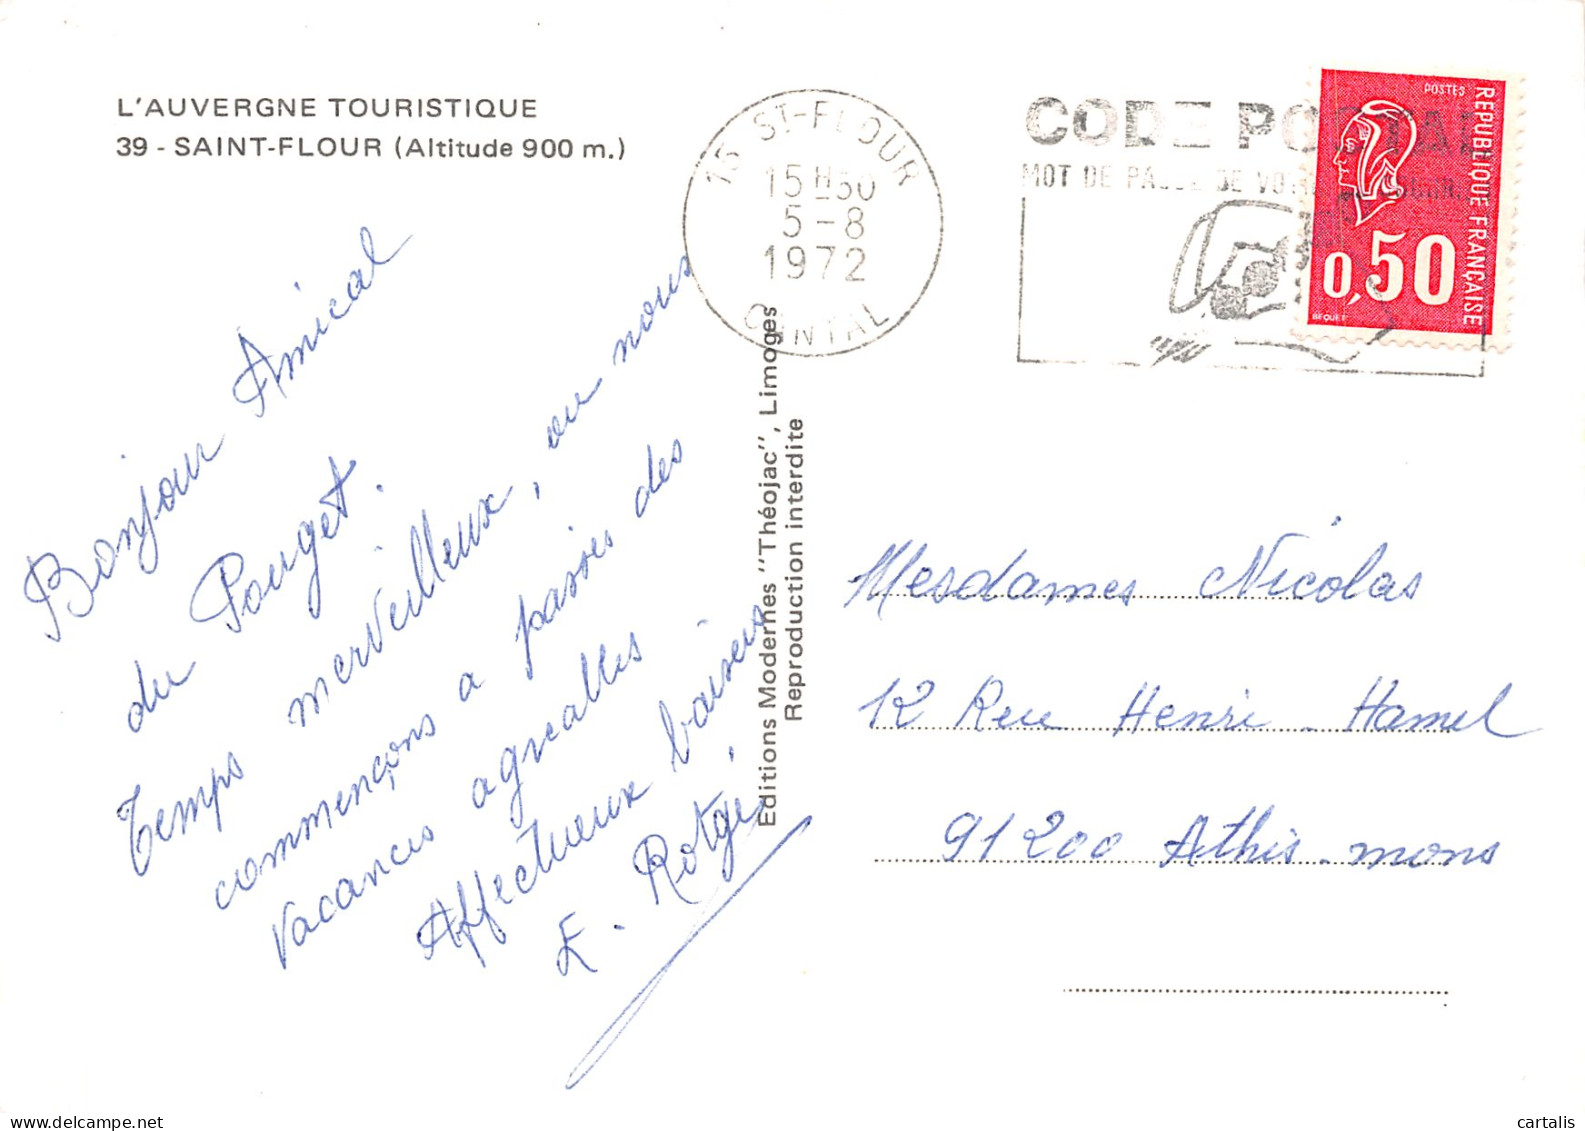 L'AUVERGNE TOURISTIQUE
39 - SAINT-FLOUR (Altitude 900 m.)
Bonjour Amical
du Pouget.
Temps merveilleux, ou nous
commençons a passés des
Vacances agrealles
Affectueux baisers
E. Rotgé
Editions Modernes "Théojac", Limoges
Reproduction interdite
15 ST-FLOUR
15 H 30
5-8
1972
CANTAL
CODE POSTAL
MOT DE PASSE DE VOTRE
POSTES
REPUBLIQUE FRANÇAISE
0,50
BEQUET
Mesdames Nicolas
12 Reu Henri - Hamel
91200 Athis-mons
delcampe.net
cartalis